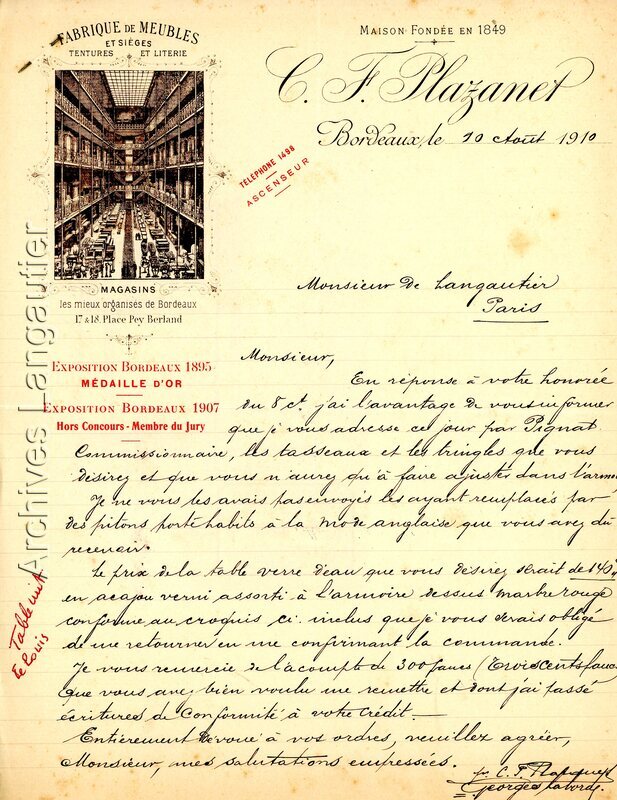 FABRIQUE DE MEUBLES
ET SIÈGES
TENTURES ET LITERIE
MAISON FONDÉE EN 1849
C. F. Plazanet
Bordeaux, le 10 Août 1910
TÉLÉPHONE 1498
ASCENSEUR
MAGASINS
les mieux organisés de Bordeaux
17 & 18, Place Pey Berland
EXPOSITION BORDEAUX 1895
MÉDAILLE D'OR
EXPOSITION BORDEAUX 1907
Hors Concours - Membre du Jury
Archives Langautier
Monsieur De Langautier
Paris
Monsieur,
En réponse à votre honorée
du 8 ct. j'ai l'avantage de vous informer
que je vous adresse ce jour par Pignat
Commissionnaire, les tasseaux et les tringles que vous
désirez et que vous n'aurez qu'à faire ajuster dans l'armo
Je ne vous les avais pas envoyés les ayant remplacés par
des pitons porte habits à la mode anglaise que vous avez dû
recevoir.
Le prix de la table verre d'eau que vous désirez serait de 140
en acajou verni assorti à l'armoire dessus marbre rouge
conforme au croquis ci inclus que je vous serais obligé
de me retourner en me confirmant la commande.
Je vous remercie de l'acompte de 300 francs (Trois cents francs
que vous avez bien voulu me remettre et dont j'ai passé
écritures de conformité à votre crédit.
Entièrement dévoué à vos ordres, veuillez agréer,
Monsieur, mes salutations empressées.
Table nuit
Le Louis
pr C. F. Plazanet
Georges Laborde